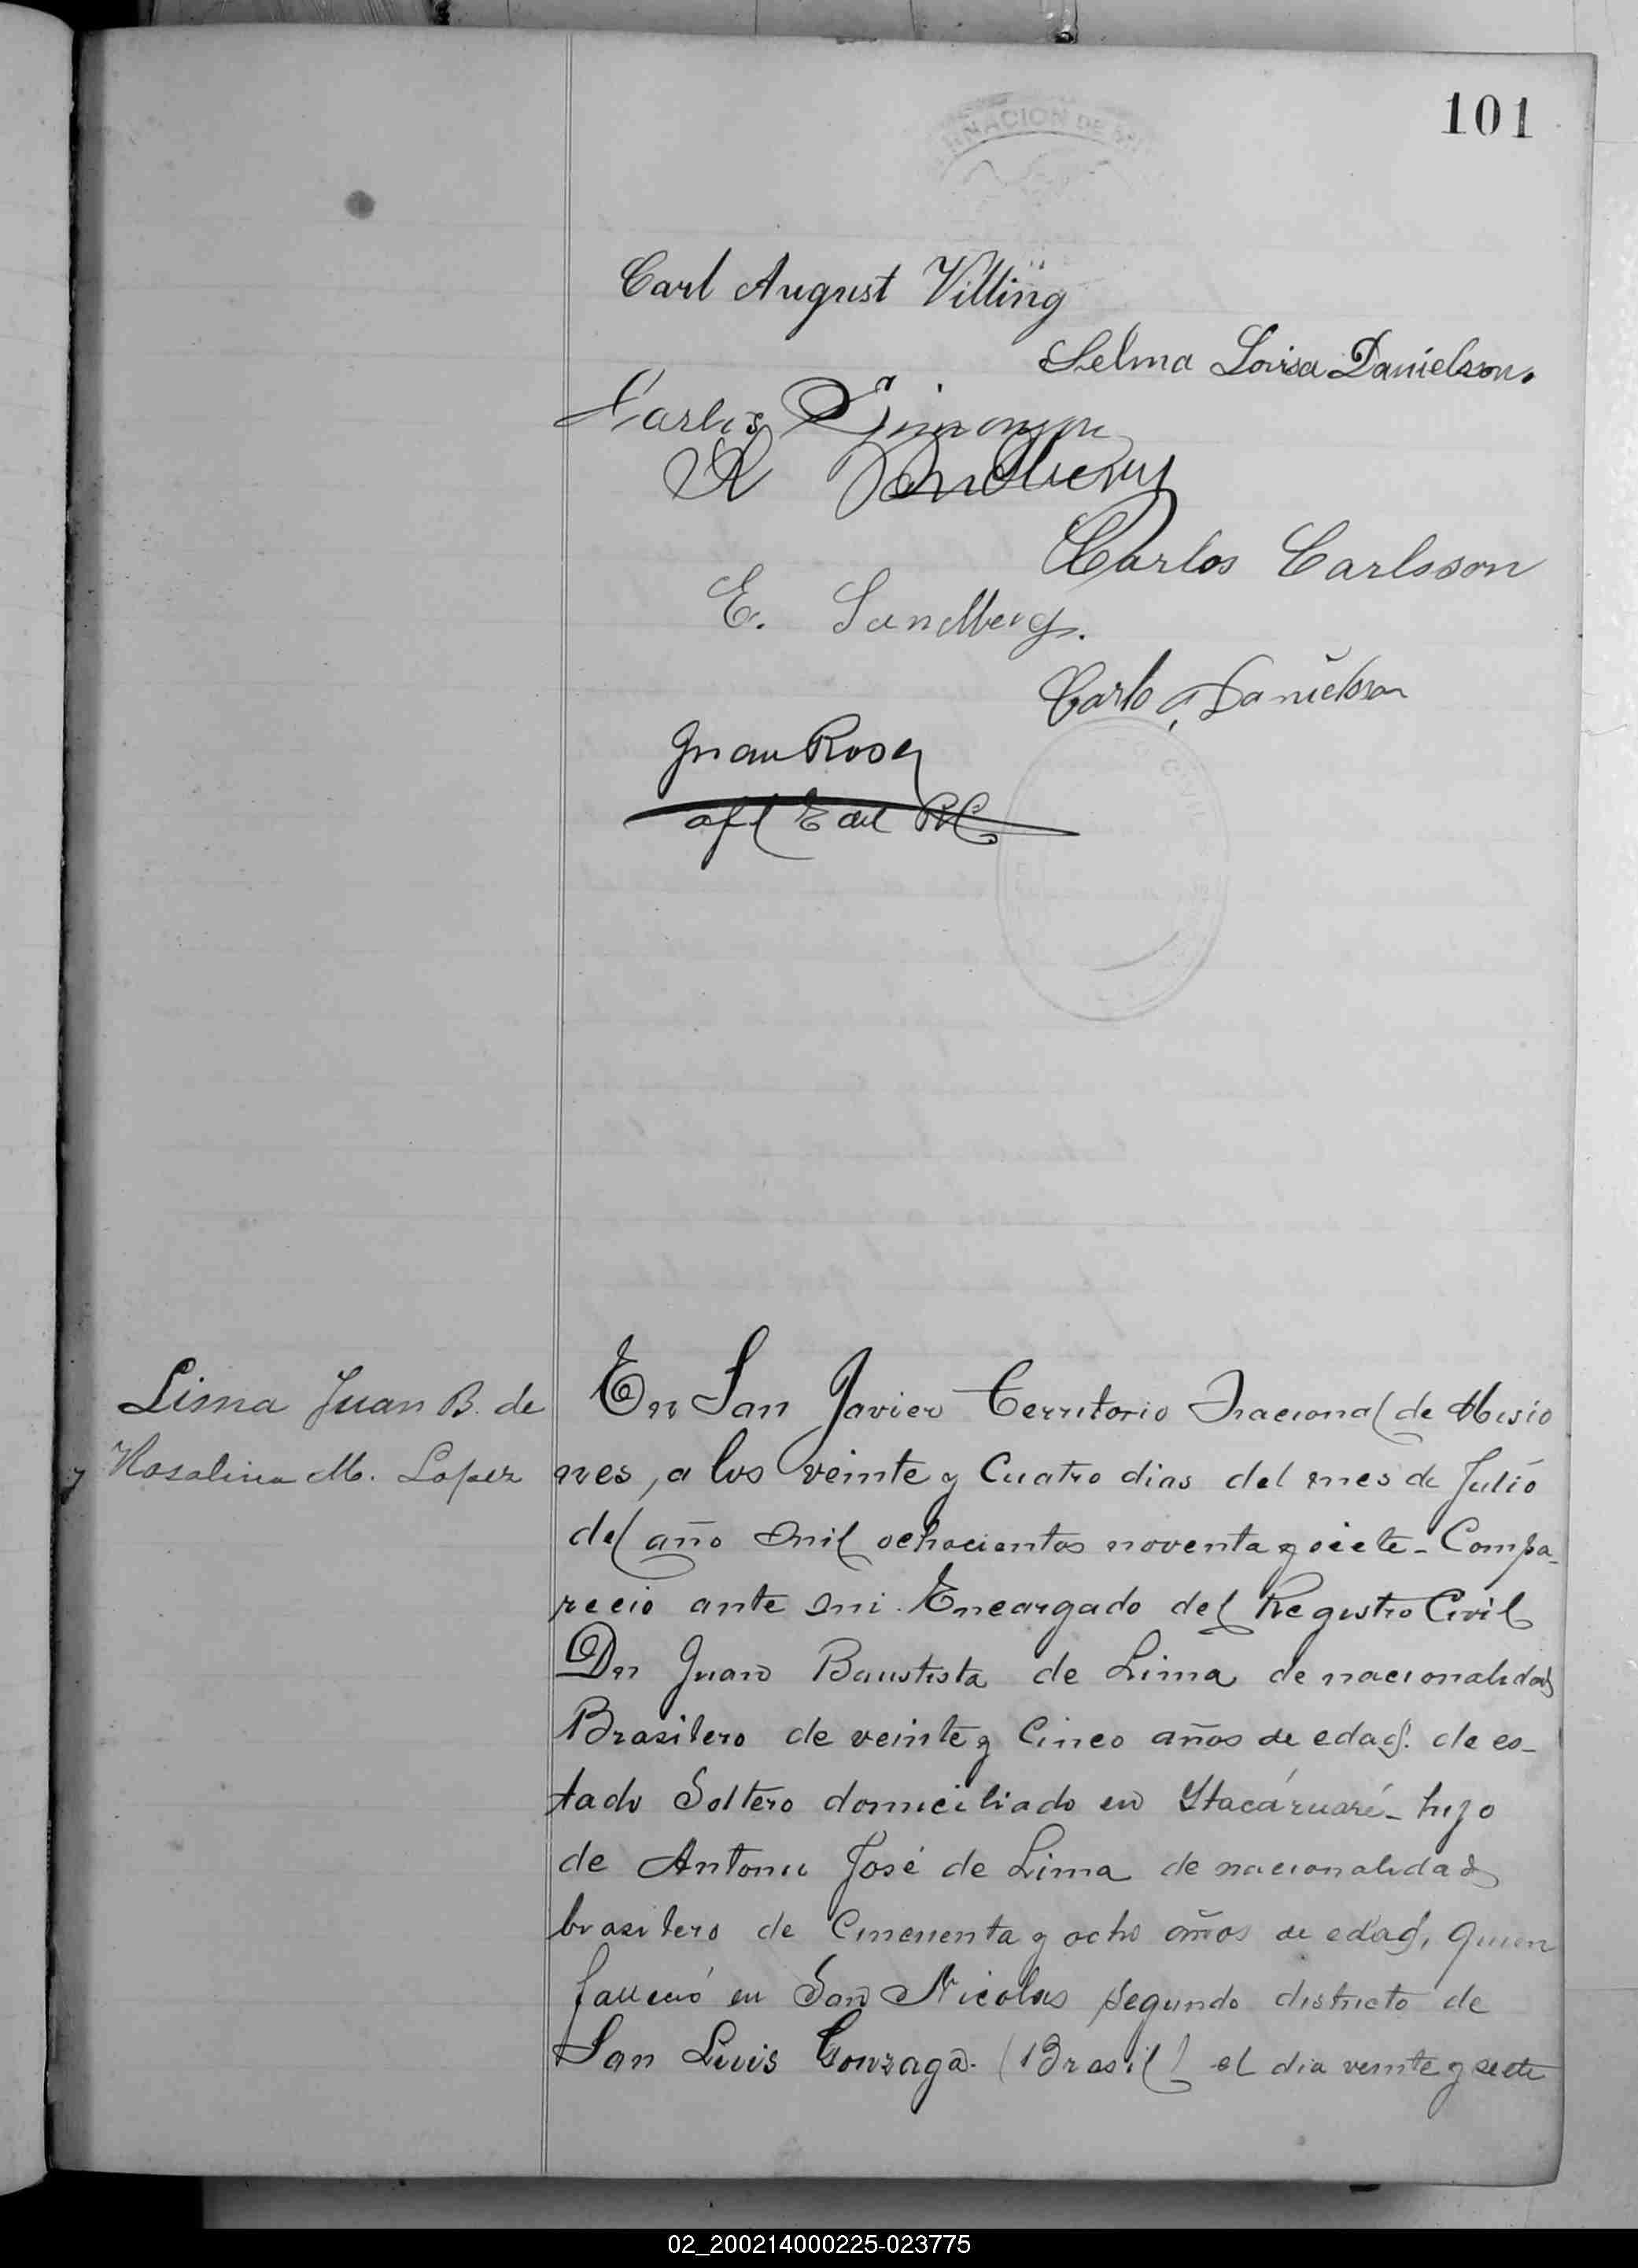 101
Carl August Villing
Selma Lovisa Danielson.
Carlos Simonson
Carlos Carlsson
E. Sandberg.
Carlo Danielsson
Juan Rosa
Lima Juan B. de
y Rosalina M. Lopez
En San Javier Territorio Nacional de Misio
nes, a los veinte y Cuatro dias del mes de Julio
del año mil ochocientos noventa y siete - Compa-
recio ante mi Encargado del Registro Civil
Dn Juan Bautista de Lima de nacionalidad
Brasilero de veinte y Cinco años de edad. de es-
tado Soltero domiciliado en Ytacáruaré - hijo
de Antonio José de Lima de nacionalidad
brasilero de Cincuenta y ocho años de edad, quien
falleció en San Nicolas segundo districto de
San Luis Gonzaga. (Brasil) el dia veinte y siete
02_200214000225-023775